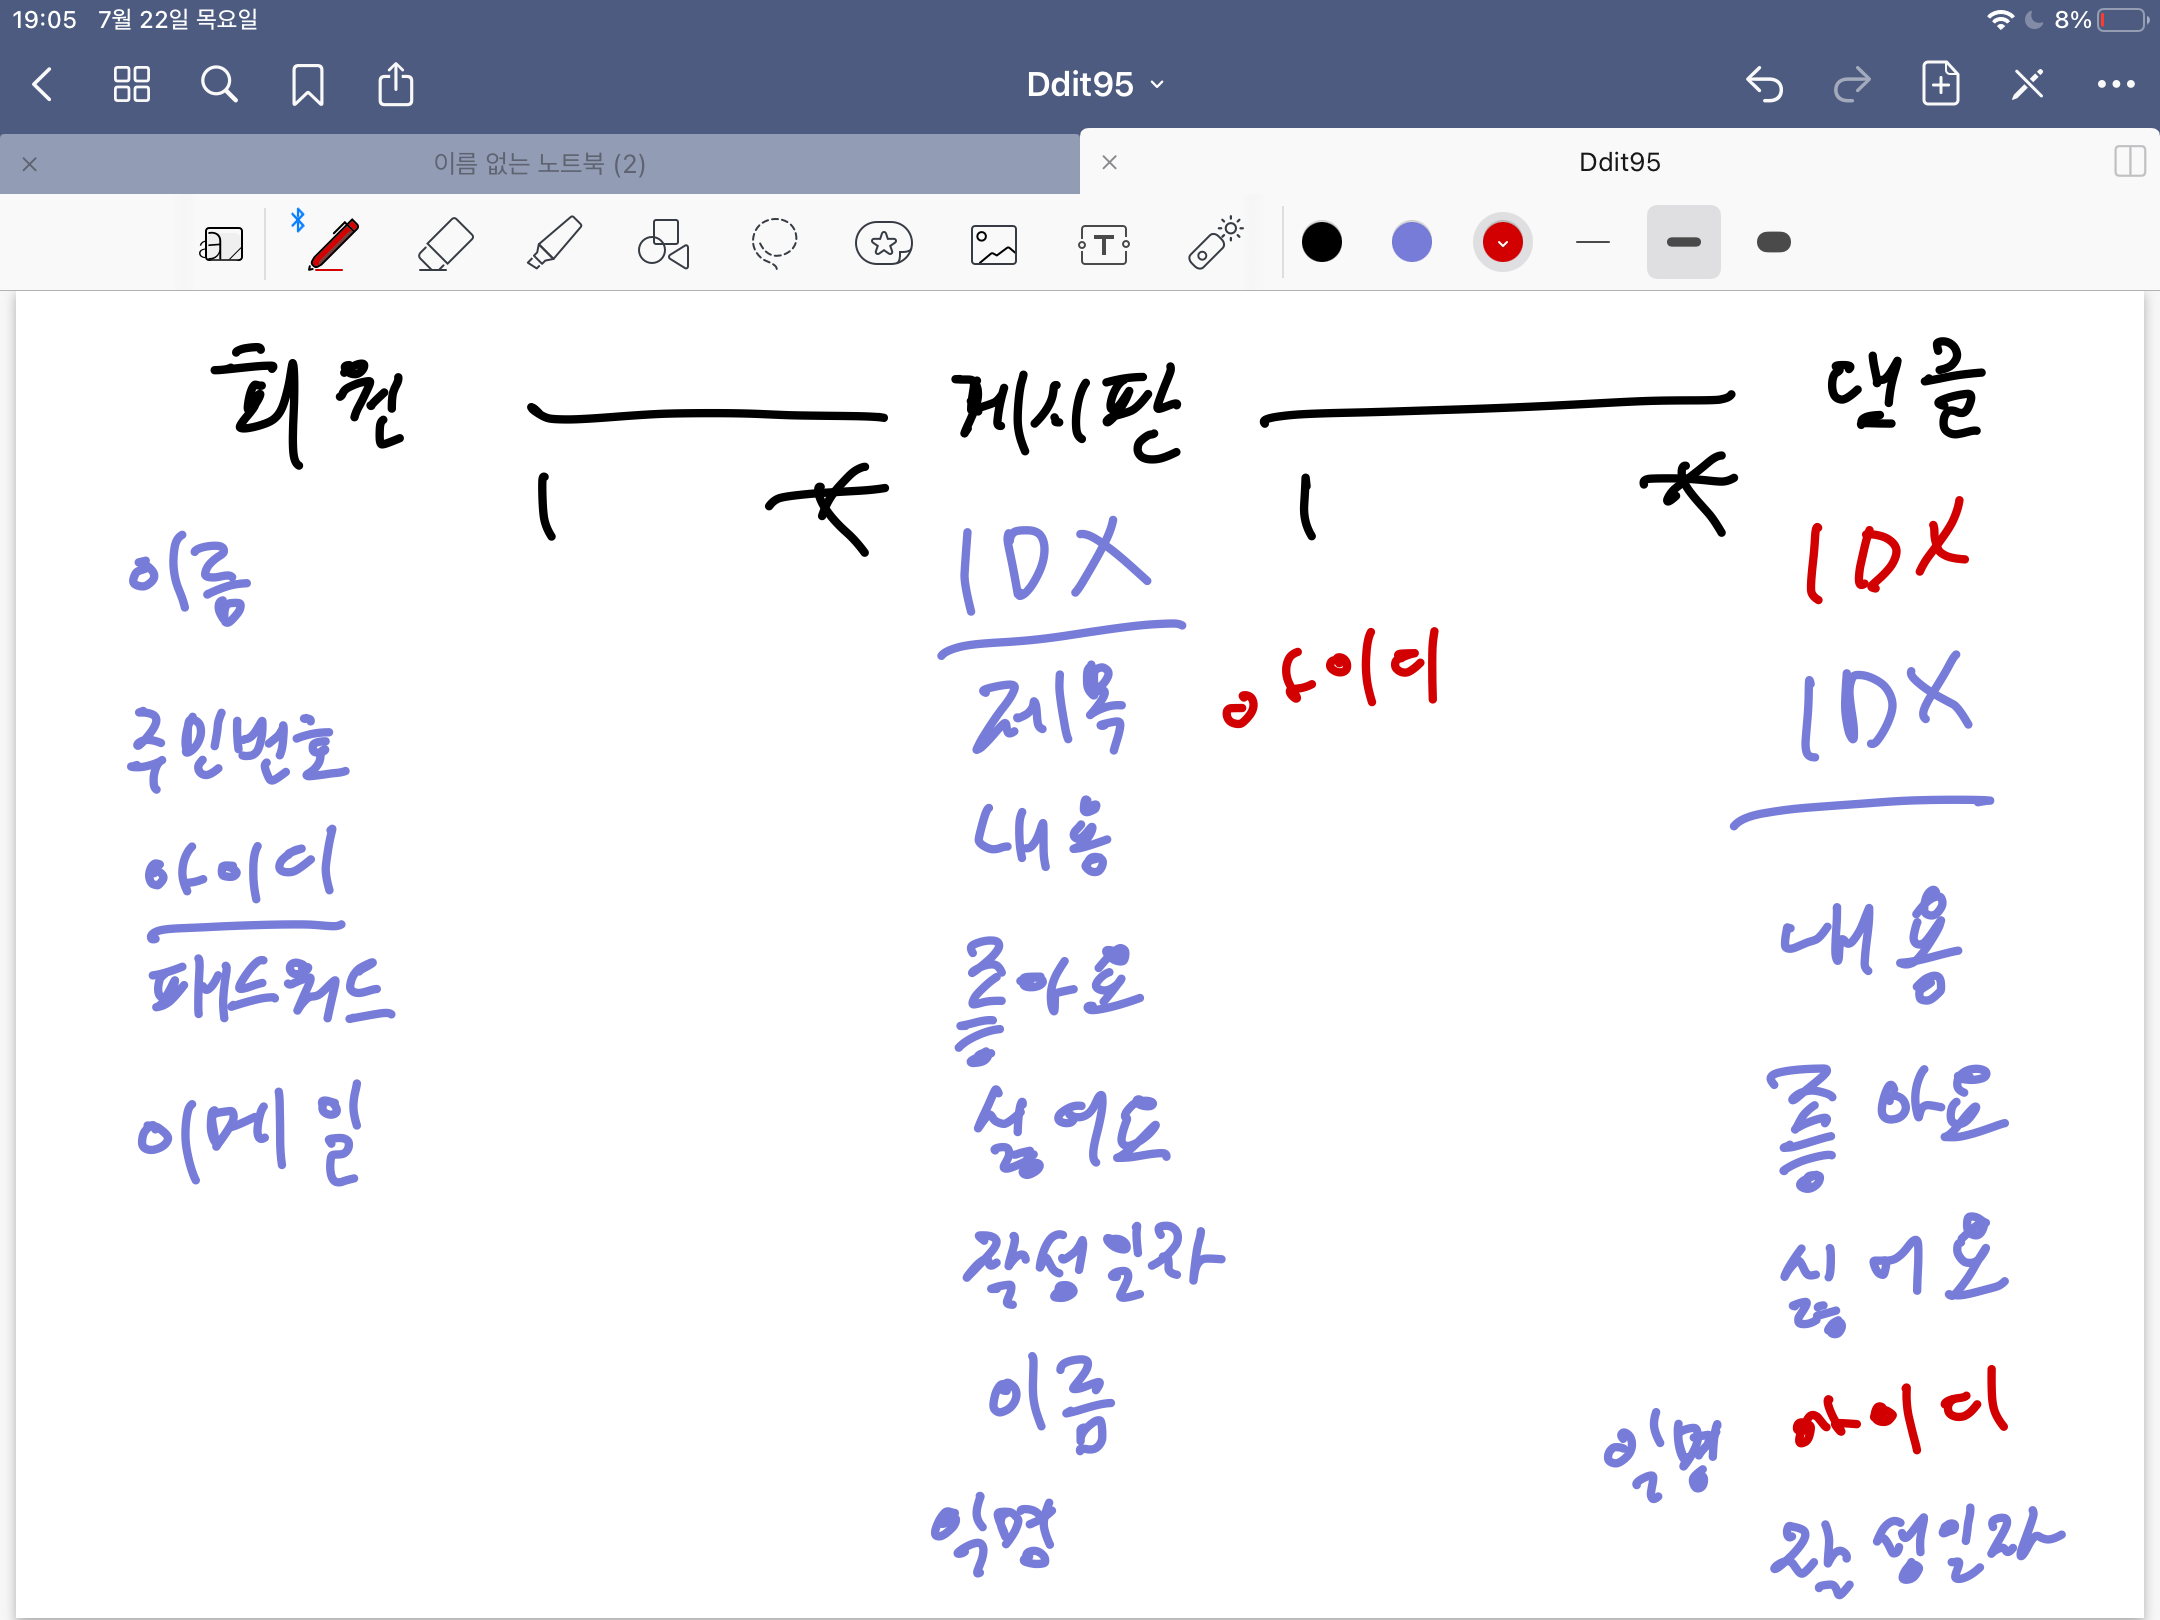 19:05 7월 22일 목요일
8%
Ddit95
이름 없는 노트북 (2)
Ddit95
T
회원
게시판
댓글
1
*
1
*
이름
주민번호
아이디
패드워드
이메일
IDX
제목
아이디
내용
좋아요
싫어요
작성일자
이름
익명
IDX
IDX
내용
좋아요
싫어요
익명
아이디
작성일자